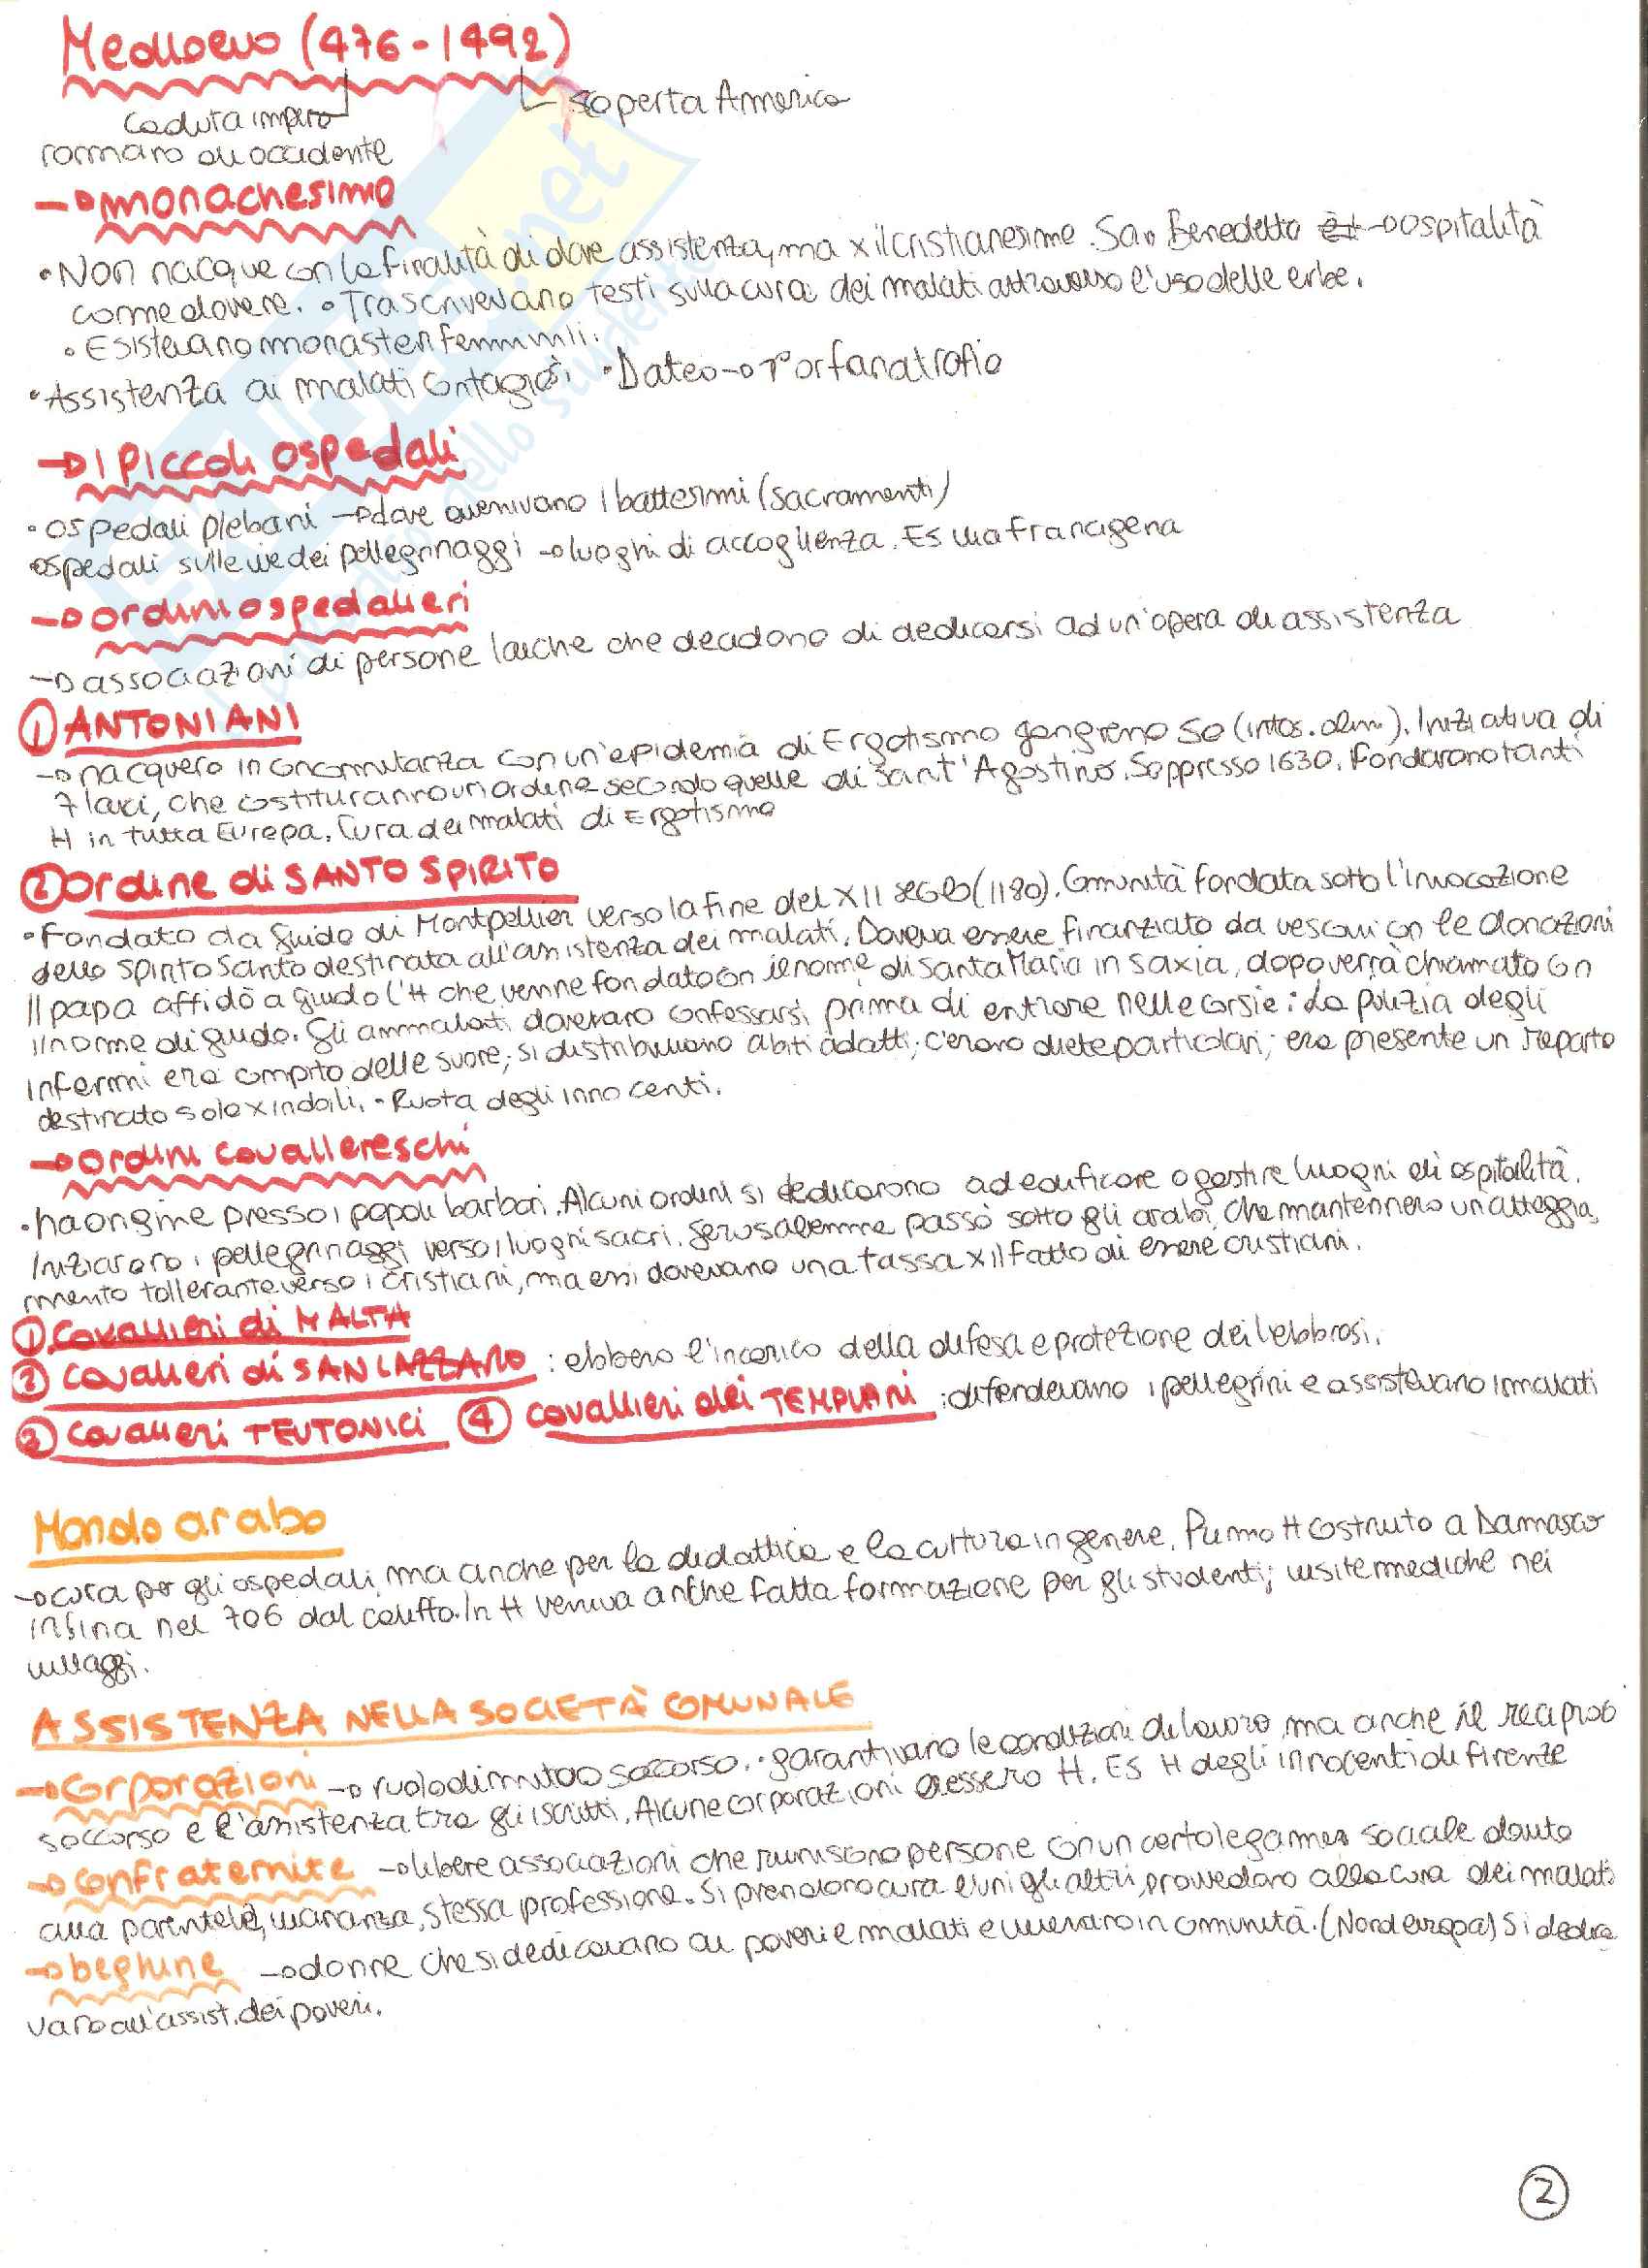 Medioevo (476-1492)
Caduta impero
romano di occidente
scoperta America
→ monachesimo
• Non nacque con la finalità di dare assistenza, ma x il cristianesimo. San Benedetto → ospitalità
come dovere. • Trascrivevano testi sulla cura dei malati attraverso l'uso delle erbe.
• Esistevano monasteri femminili.
• Assistenza ai malati contagiosi • Dateo → 1° orfanatrofio
→ I piccoli ospedali
• ospedali plebani → dove avvenivano i battesimi (sacramenti)
• ospedali sulle vie dei pellegrinaggi → luoghi di accoglienza. Es via francigena
→ ordini ospedalieri
→ associazioni di persone laiche che decidono di dedicarsi ad un'opera di assistenza
① ANTONIANI
→ nacquero in concomitanza con un'epidemia di Ergotismo gangrenoso (intos. alim.). Iniziativa di
7 laici, che costituiranno un ordine secondo quelle di Sant'Agostino. Soppresso 1630. Fondarono tanti
H in tutta Europa. Cura dei malati di Ergotismo
② ordine di SANTO SPIRITO
• Fondato da Guido di Montpellier verso la fine del XII secolo (1180). Comunità fondata sotto l'invocazione
dello spirito santo destinata all'assistenza dei malati. Doveva essere finanziato da vescovi con le donazioni
Il papa affidò a Guido l'H che venne fondato con il nome di Santa Maria in Saxia, dopo verrà chiamato con
il nome di guido. Gli ammalati dovevano confessarsi prima di entrare nelle corsie: la pulizia degli
infermi era compito delle suore; si distribuivano abiti adatti; c'erano diete particolari; era presente un reparto
destinato solo x i nobili. • Ruota degli innocenti.
→ ordini cavallereschi
• ha origine presso i popoli barbari. Alcuni ordini si dedicarono ad edificare o gestire luoghi di ospitalità.
Iniziarono i pellegrinaggi verso i luoghi sacri. Gerusalemme passò sotto gli arabi, che mantennero un atteggia
mento tollerante verso i cristiani, ma essi dovevano una tassa x il fatto di essere cristiani.
① Cavalieri di MALTA
② Cavalieri di SAN LAZZARO : ebbero l'incarico della difesa e protezione dei lebbrosi.
③ Cavalieri TEUTONICI ④ Cavalieri dei TEMPLARI : difendevano i pellegrini e assistevano i malati
Mondo arabo
→ cura per gli ospedali, ma anche per la didattica e la cultura in genere. Primo H costruito a Damasco
in Siria nel 706 dal califfo. In H veniva anche fatta formazione per gli studenti; visite mediche nei
villaggi.
ASSISTENZA NELLA SOCIETÀ COMUNALE
→ Corporazioni → ruolo di mutuo soccorso. • garantivano le condizioni di lavoro, ma anche il reciproco
soccorso e l'assistenza tra gli iscritti. Alcune corporazioni eressero H. ES H degli innocenti di Firenze
→ Confraternite → libere associazioni che riuniscono persone con un certo legame sociale dovuto
alla parentela, vicinanza, stessa professione. Si prendono cura l'uni gli altri, provvedono alla cura dei malati
→ beghine → donne che si dedicavano ai poveri e malati e vivevano in comunità. (Nord europa) Si dedica
vano all'assist. dei poveri.
2